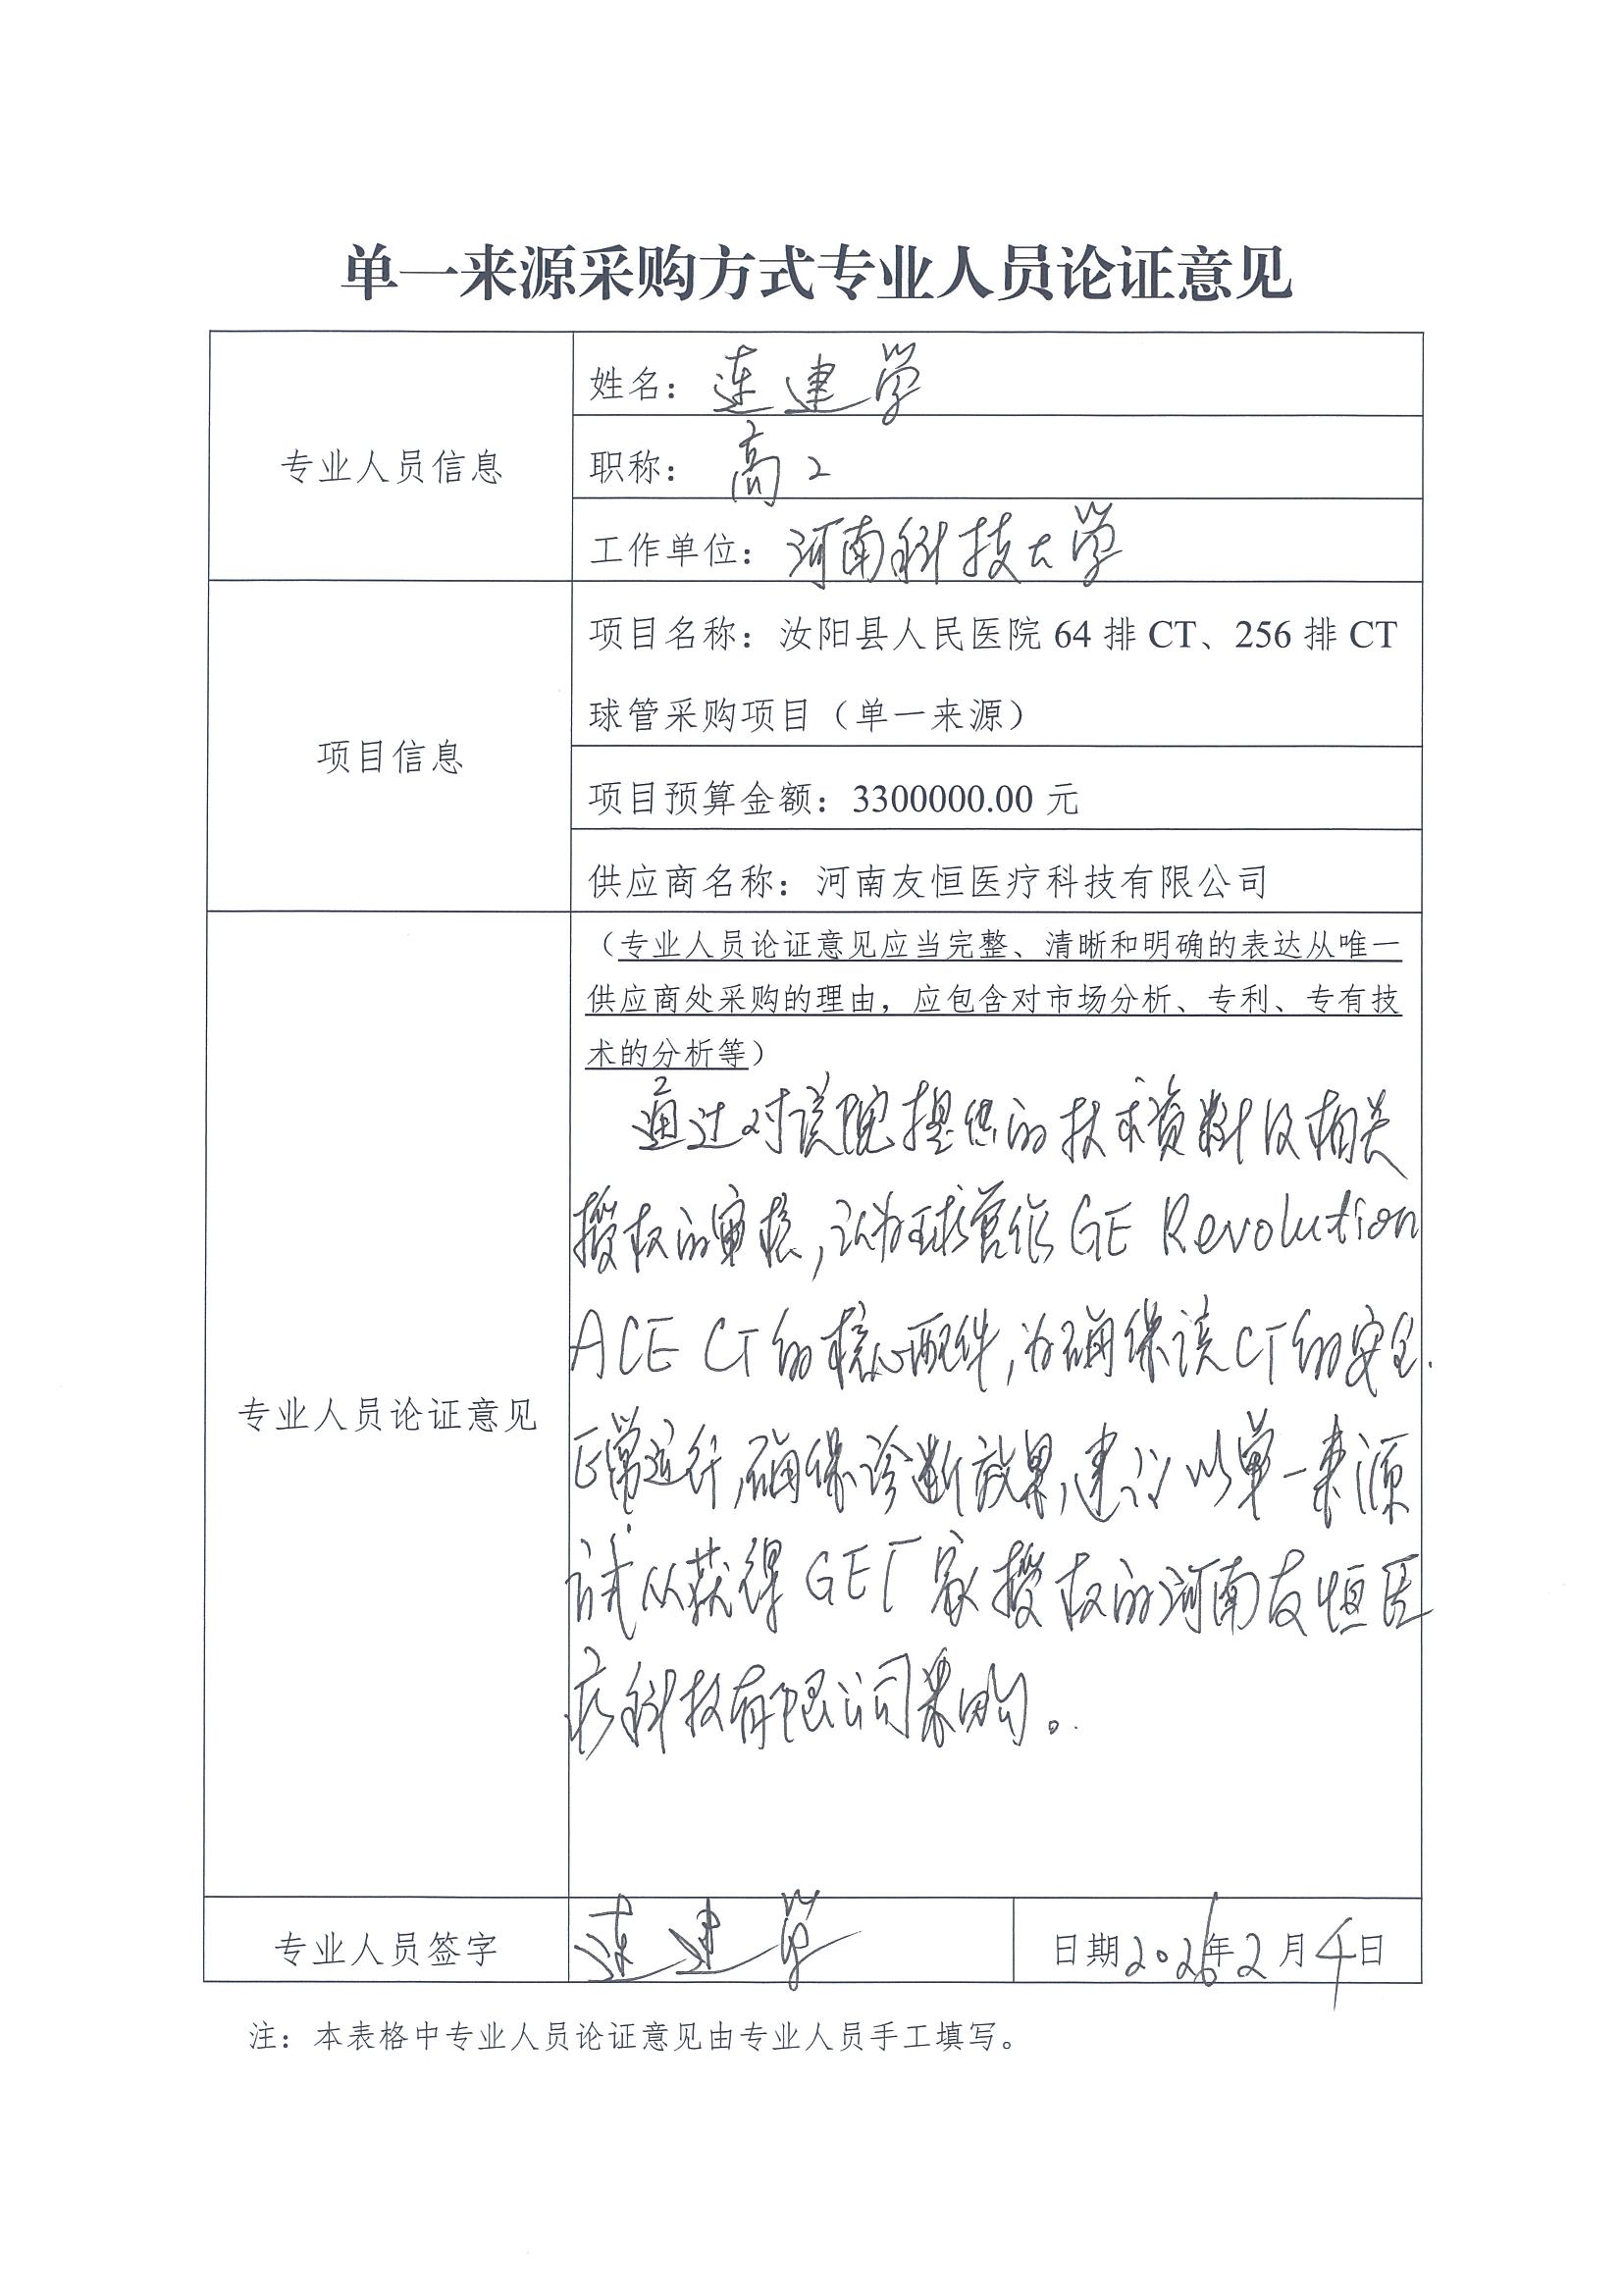 单一来源采购方式专业人员论证意见
专业人员信息
姓名：连建学
职称：高工
工作单位：河南科技大学
项目信息
项目名称：汝阳县人民医院 64 排 CT、256 排 CT
球管采购项目（单一来源）
项目预算金额：3300000.00 元
供应商名称：河南友恒医疗科技有限公司
专业人员论证意见
（专业人员论证意见应当完整、清晰和明确的表达从唯一
供应商处采购的理由，应包含对市场分析、专利、专有技
术的分析等）
通过对该院提供的技术资料及相关
授权的审核，认为球管作GE Revolution
ACE CT的核心配件，为确保该CT的安全.
正常运行，确保诊断效果，建议以单一来源
式从获得GE厂家授权的河南友恒医
疗科技有限公司采购。
专业人员签字
连建学
日期2026年2月4日
注：本表格中专业人员论证意见由专业人员手工填写。